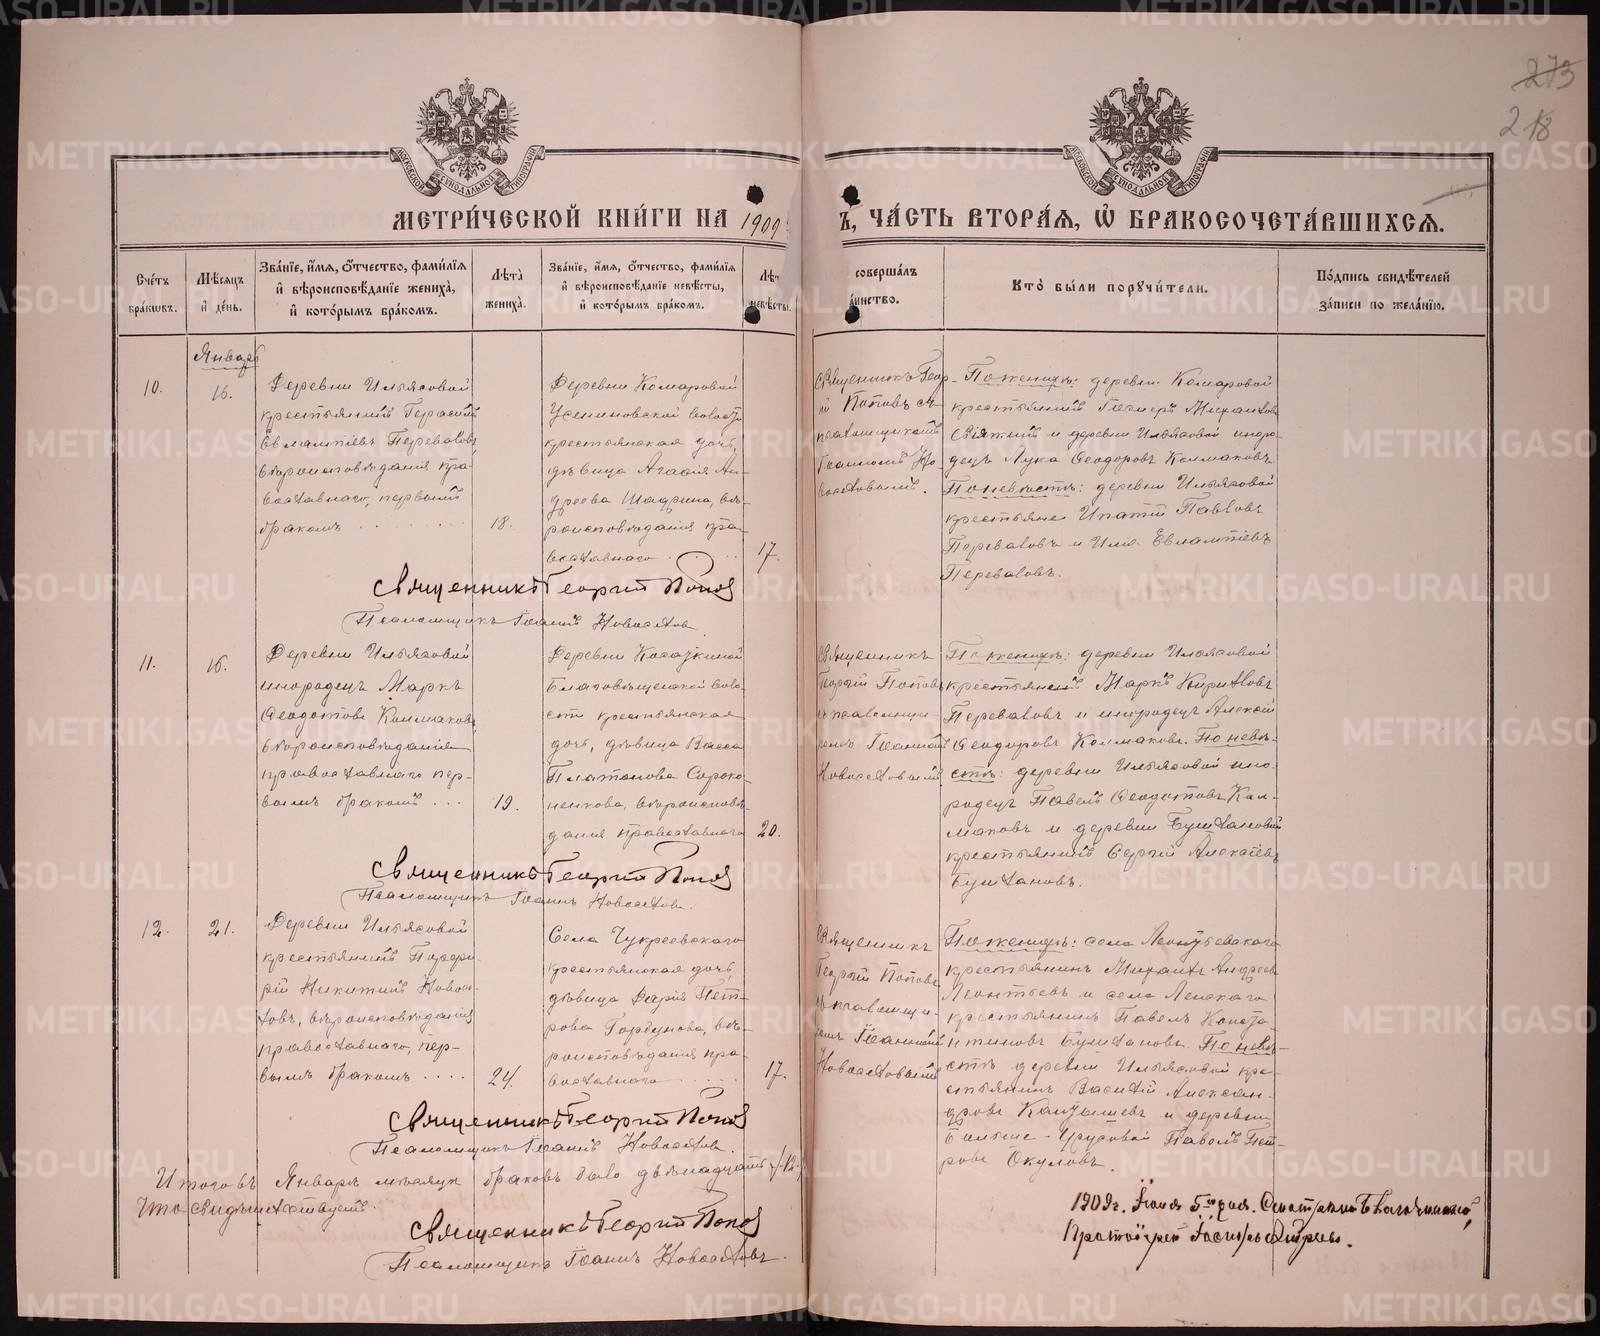 273
218
МЕТРИ́ЧЕСКОЙ КНИ́ГИ НА 1909
Ъ, ЧА́СТЬ ВТОРА́Я, Ѡ҆ БРАКОСОЧЕТА́ВШИХСѦ.
Сче́тъ бра́кѡвъ.
Мѣ́сяцъ и҆ де́нь.
Зва́нїе, и҆́мѧ, ѻ҆́тчество, фами́лїѧ и҆ вѣроисповѣ́данїе жениха̀, и҆ кото́рымъ бра́комъ.
Лѣта̀ жениха̀.
Зва́нїе, и҆́мѧ, ѻ҆́тчество, фами́лїѧ и҆ вѣроисповѣ́данїе невѣ́сты, и҆ кото́рымъ бра́комъ.
Лѣт невѣ́сты.
совершáлъ
тáинство.
Кто̀ бы́ли порꙋчи́тели.
По́дпись свидѣ́телей за́писи по жела́нїю.
Январь
10.
16.
Деревни Ильясовой
крестьянинъ Герасимъ
Евлампіевъ Переваловъ,
вѣроисповѣданія пра-
вославнаго, первымъ
бракомъ
18.
Деревни Комаровой
Усениновской волост.
крестьянская дочь,
дѣвица Агафія Ан-
дреева Шадрина, вѣ-
роисповѣданія пра-
вославнаго
17.
Священникъ Геор-
ій Поповъ съ
псаломщикомъ
Іоанномъ Но-
воселовымъ.
По женихѣ: деревни Комаровой
крестьянинъ Михаиловъ
и деревни Ильясовой иноро-
децъ Лука Ѳеодоровъ Колмаковъ
По невѣстѣ: деревни Ильясовой
крестьяне Ипатій Павловъ
Переваловъ и Илія Евлампіевъ
Переваловъ.
Священникъ Георгій Попов
Псаломщикъ Іоаннъ Новоселов.
11.
16.
Деревни Ильясовой
инородецъ Маркъ
Ѳеодотовъ Колмаковъ,
вѣроисповѣданія
православнаго пер-
вымъ бракомъ ...
19.
Деревни
Благовѣщенской воло-
сти крестьянская
дочь, дѣвица Васса
Платонова Сороко-
ненкова, вѣроисповѣ-
данія православнаго
20.
Священникъ
Георгій Поповъ
съ псаломщи-
комъ Іоанномъ
Новоселовымъ
По женихѣ: деревни Ильясовой
крестьянинъ Маркъ Кириловъ
Переваловъ и инородецъ Алексій
Ѳеодоровъ Колмаковъ. По невѣ-
стѣ: деревни Ильясовой ино-
родецъ Павелъ Ѳеодотовъ Кол-
маковъ и деревни Булановой
крестьянинъ Сергій Алексѣевъ
Булановъ.
Священникъ Георгій Попов
Псаломщикъ Іоаннъ Новоселов.
12.
21.
Деревни Ильясовой
крестьянинъ Порфи-
рій Никитинъ Новосе-
ловъ, вѣроисповѣданія
православнаго, пер-
вымъ бракомъ ....
24.
Села Чукреевскаго
крестьянская дочь,
дѣвица Дарія Пет-
рова Горбунова, вѣ-
роисповѣданія пра-
вославнаго
17.
Священникъ
Георгій Поповъ
съ псаломщи-
комъ Іоанномъ
Новоселовымъ
По женихѣ: села Леонтьевскаго
крестьянинъ Михаилъ Андреевъ
Леонтьевъ и села Ленскаго
крестьянинъ Павелъ Конста-
нтиновъ Булановъ. По невѣ-
стѣ деревни Ильясовой кре-
стьянинъ Василій Алексан-
дровъ и деревни
Больше- Павелъ Пет-
ровъ Окуловъ.
Священникъ Георгій Попов
Псаломщикъ Іоаннъ Новоселов.
Итого въ Январѣ мѣсяцѣ браковъ было двѣнадцать /12/
Что свидѣтельствуетъ.
Священникъ Георгій Попов
Псаломщикъ Іоаннъ Новоселовъ.
1909г. Іюня 5го дня. Благочинный,
Протоіерей